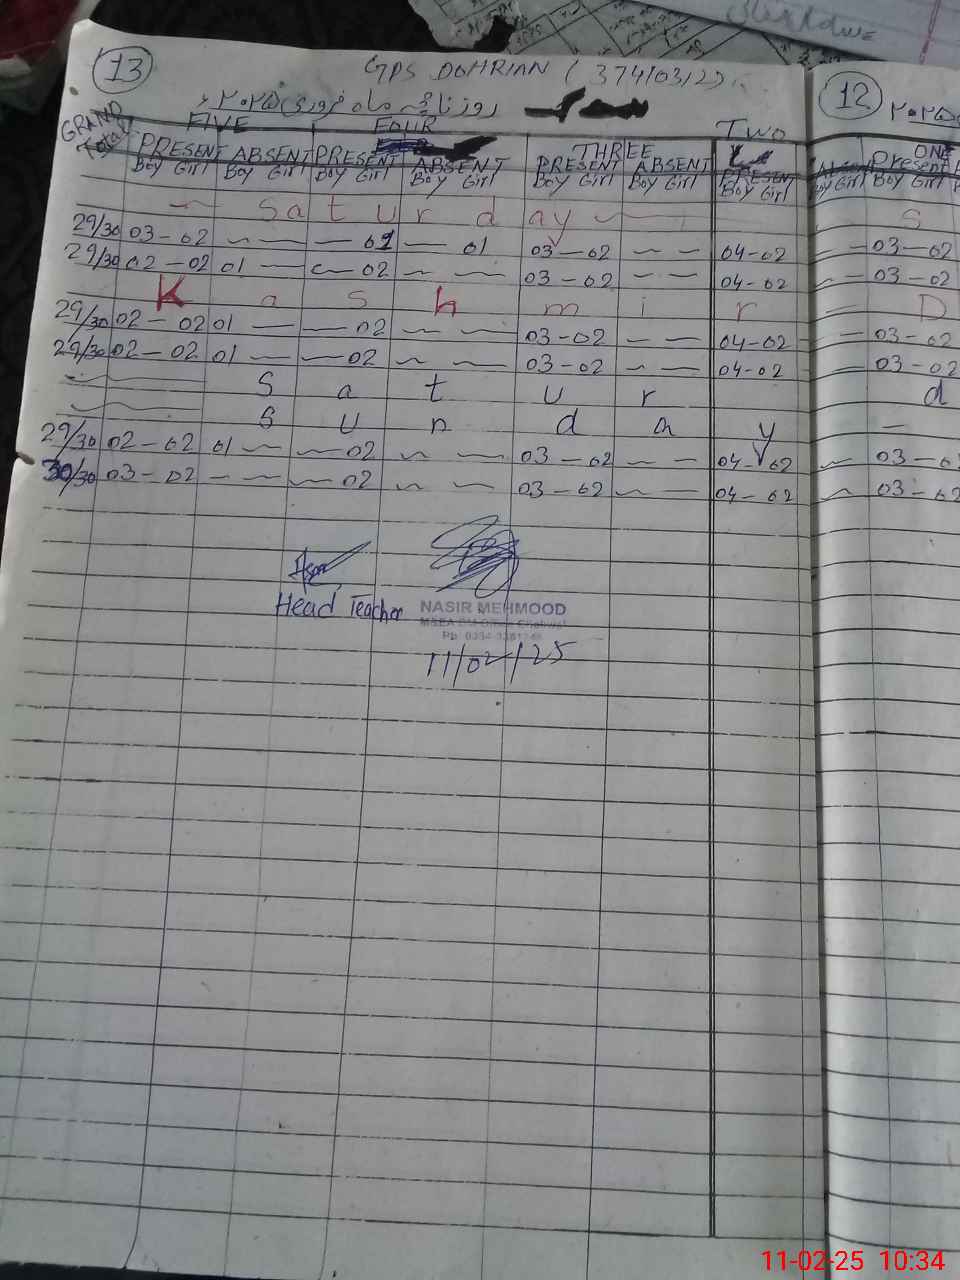 13
GPS DOHRIAN (37410312)
روزنامچہ ماہ فروری ۲۰۲۵ء
12
۲۰۲۵
GRAND Total
FIVE FOUR THREE TWO ONE
PRESENT ABSENT PRESENT ABSENT PRESENT ABSENT PRESENT Absent Present
Boy Girl Boy Girl Boy Girl Boy Girl Boy Girl Boy Girl Boy Girl Boy Girl Boy Girl
Saturday S
29/30 03-02 — — — 01 — 01 03-02 — — 04-02 — — 03-02
29/30 02-02 01 — — 02 — — 03-02 — — 04-02 — — 03-02
Kashmir D
29/30 02-02 01 — — 02 — — 03-02 — — 04-02 — — 03-02
29/30 02-02 01 — — 02 — — 03-02 — — 04-02 — — 03-02
Satur d
Sunday
29/30 02-02 01 — — 02 — — 03-02 — — 04-02 — — 03-0
30/30 03-02 — — — 02 — — 03-02 — — 04-02 — — 03-02
Head Teacher
NASIR MEHMOOD
11/02/25
11-02-25 10:34